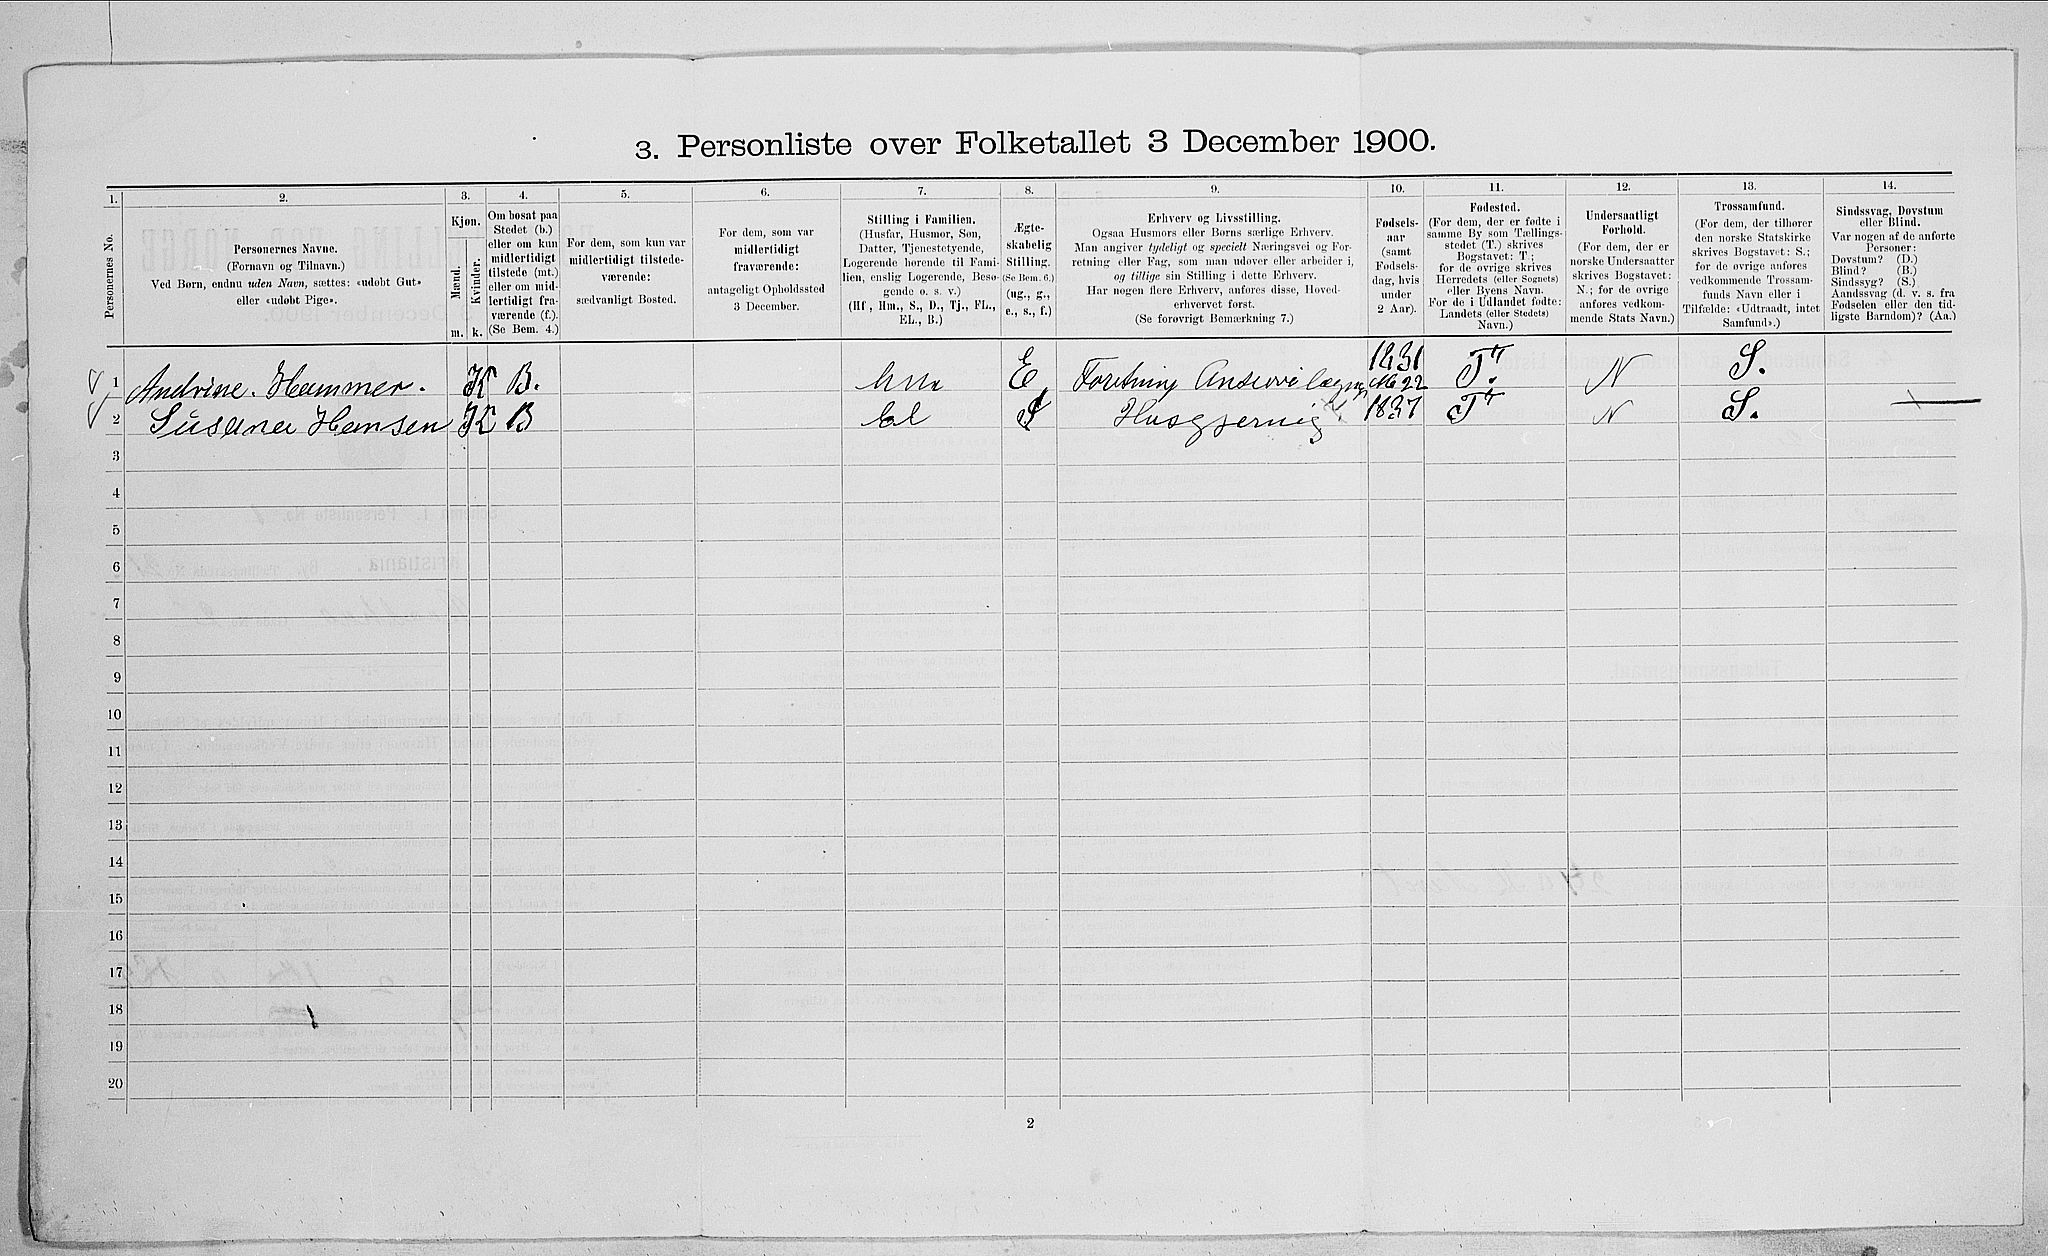 3. Personliste over Folketallet 3 December 1900.
1. 2. 3. 4. 5. 6. 7. 8. 9. 10. 11. 12. 13. 14.
Personernes No.
Personernes Navne.
(Fornavn og Tilnavn.)
Ved Børn, endnu uden Navn, sættes: «udøbt Gut»
eller «udøbt Pige».
Kjøn.
Mænd.
Kvinder.
m. k.
Om bosat paa
Stedet (b.)
eller om kun
midlertidigt
tilstede (mt.)
eller om mid-
lertidigt fra-
værende (f.).
(Se Bem. 4.)
For dem, som kun var
midlertidigt tilstede-
værende:
sædvanligt Bosted.
For dem, som var
midlertidigt
fraværende:
antageligt Opholdssted
3 December.
Stilling i Familien.
(Husfar, Husmor, Søn,
Datter, Tjenestetyende,
Logerende hørende til Fami-
lien, enslig Logerende, Besø-
gende o. s. v.)
(Hf, Hm., S., D., Tj., FL.,
EL., B.)
Ægte-
skabelig
Stilling.
(Se Bem. 6.)
(ug., g.,
e., s., f.)
Erhverv og Livsstilling.
Ogsaa Husmors eller Børns særlige Erhverv.
Man angiver tydeligt og specielt Næringsvei og For-
retning eller Fag, som man udøver eller arbeider i,
og tillige sin Stilling i dette Erhverv.
Har nogen flere Erhverv, anføres disse, Hoved-
erhvervet først.
(Se forøvrigt Bemærkning 7.)
Fødsels-
aar
(samt
Fødsels-
dag, hvis
under
2 Aar).
Fødested.
(For dem, der er fødte i
samme By som Tællings-
stedet (T.) skrives
Bogstavet: T;
for de øvrige skrives
Herredets (eller Sognets)
eller Byens Navn.
For de i Udlandet fødte:
Landets (eller Stedets)
Navn.)
Undersaatligt
Forhold.
(For dem, der er
norske Undersaatter
skrives Bogstavet:
N.; for de øvrige
anføres vedkom-
mende Stats Navn.)
Trossamfund.
(For dem, der tilhører
den norske Statskirke
skrives Bogstavet: S.;
for de øvrige anføres
vedkommende Trossam-
funds Navn eller i
Tilfælde: «Udtraadt, intet
Samfund».)
Sindssvag, Døvstum
eller Blind.
Var nogen af de anførte
Personer:
Døvstum? (D.)
Blind? (B.)
Sindssyg? (S.)
Aandssvag (d. v. s. fra
Fødselen eller den tid-
ligste Barndom)? (Aa.)
1 Andrine. Hammer. K B. hm E Foretning 1831 T. N S.
2 Susana Hansen K B el Husgjernig 1837 T N S.
3
4
5
6
7
8
9
10
11
12
13
14
15
16
17
18
19
20
2